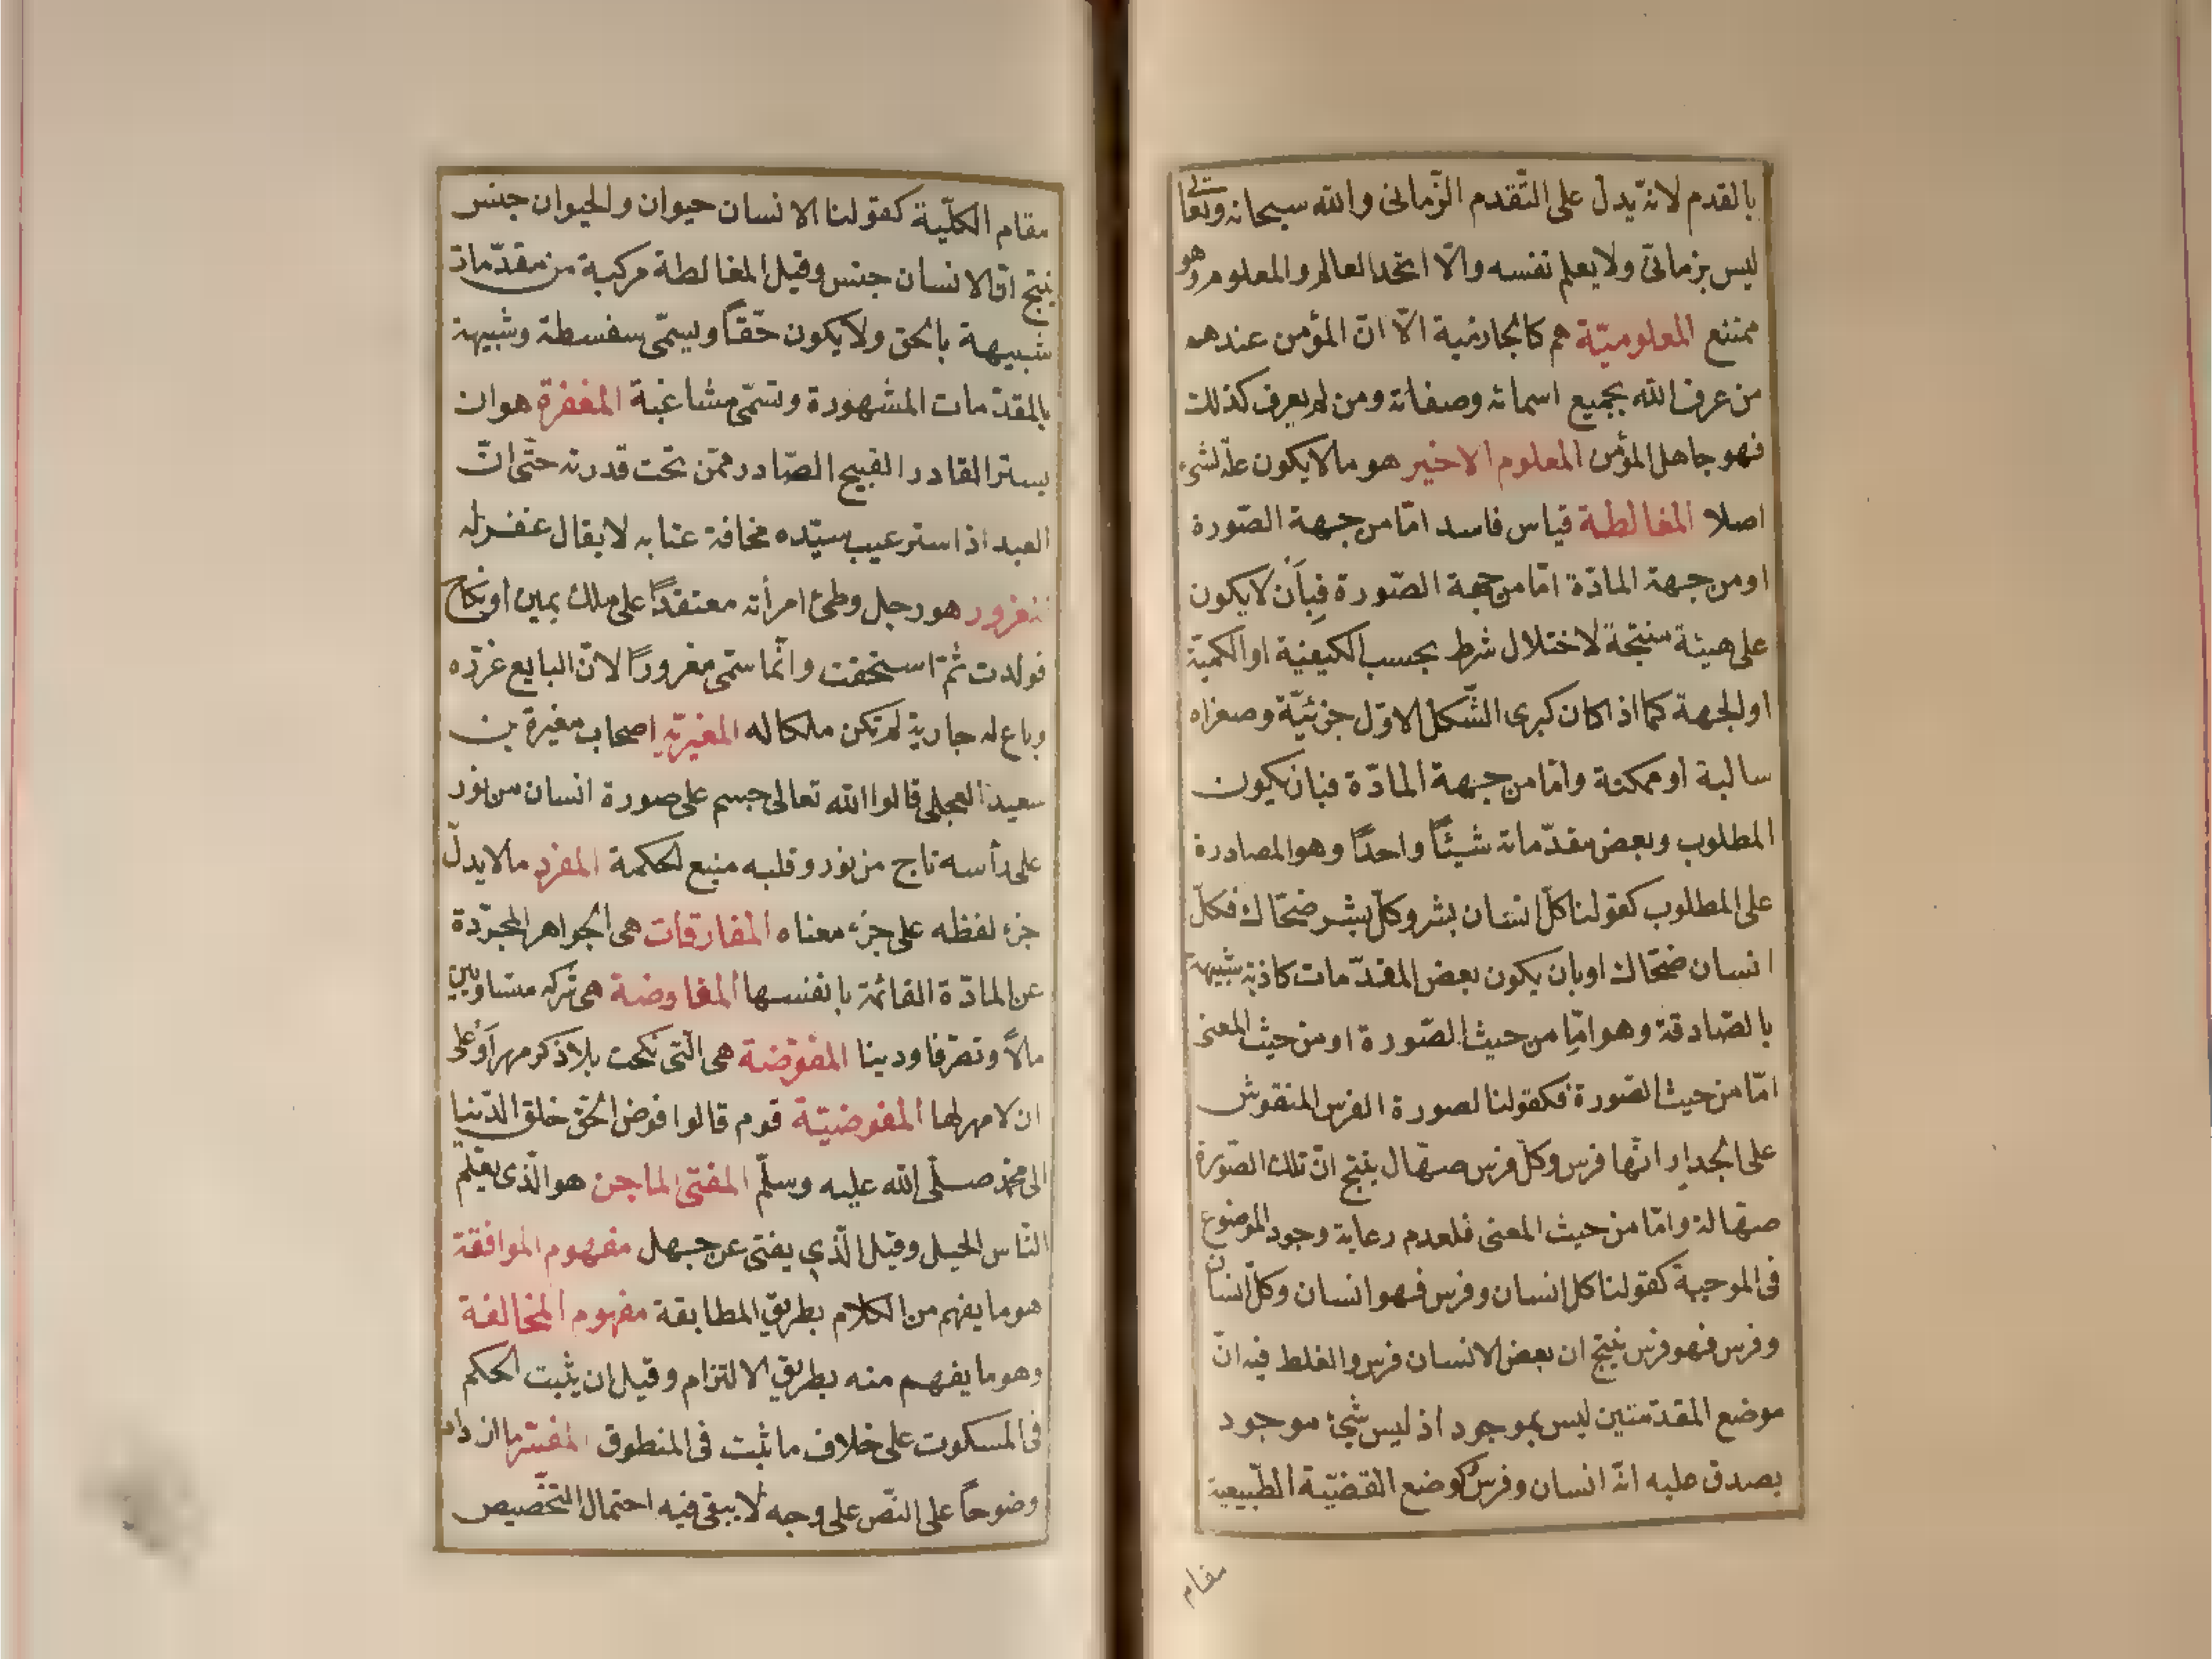 بالقدم لانه يدل على التّقدم الزّمانى والله سبحانه وتعالى
ليس بزمانىّ ولا يعلم نفسه والّا اتّحد العالم والمعلوم وهو
ممتنع المعلوميّة هم كالجازمية الّا انّ المؤمن عندهم
من عرف الله بجميع اسمائه وصفاته ومن لم يعرف كذلك
فهو جاهل المؤمن المعلوم الاخير هو ما لا يكون علّة لشئ
اصلا المغالطة قياس فاسد امّا من جهة الصّورة
او من جهة المادّة امّا من جهة الصّورة فبان لا يكون
على هيئة منتجة لاختلال شرط بحسب الكيفية او الكميّة
او الجهة كما اذا كان كبرى الشّكل الاوّل جزئيّة وصغراه
سالبة او ممكنة وامّا من جهة المادّة فبان يكون
المطلوب وبعض مقدّماته شيئًا واحدًا وهو المصادرة
على المطلوب كقولنا كلّ انسان بشر وكلّ بشر ضحّاك فكلّ
انسان ضحّاك او بان يكون بعض المقدّمات كاذبة شبيهة
بالصّادقة وهو امّا من حيث الصّورة او من حيث المعنى
امّا من حيث الصّورة فكقولنا لصورة الفرس المنقوش
على الجدار انّها فرس وكلّ فرس صهّال ينتج انّ تلك الصّورة
صهّالة وامّا من حيث المعنى فلعدم رعاية وجود الموضوع
فى الموجبة كقولنا كل انسان وفرس فهو انسان وكلّ انسان
وفرس فهو فرس ينتج ان بعض الانسان فرس والغلط فيه انّ
موضع المقدّمتين ليس بموجود اذ ليس شئ موجود
يصدق عليه انّه انسان وفرس كوضع القضيّة الطّبيعية
مقام
مقام الكلّية كقولنا الانسان حيوان والحيوان جنس
ينتج انّ الانسان جنس وقيل المغالطة مركبة من مقدّمات
شبيهة بالحق ولا يكون حقّاً ويسمّى سفسطة وشبيهة
بالمقدّمات المشهورة وتسمّى مشاغبة المغفرة هو ان
يستر القادر القبيح الصّادر ممّن تحت قدرته حتّى انّ
العبد اذا ستر عيب سيّده مخافة عتابه لا يقال غفر له
المغرور هو رجل وطئ امرأته معتقدًا على ملك يمين او نكاح
فولدت ثمّ استحقت وانّما سمّى مغرورًا لانّ البايع غرّه
وباع له جارية لم تكن ملكا له المغيرية اصحاب مغيرة بن
سعيد العجلى قالوا الله تعالى جسم على صورة انسان من نور
على رأسه تاج من نور وقلبه منبع لحكمة المفرد ما لا يدلّ
جزء لفظه على جزء معناه المفارقات هى الجواهر المجرّدة
عن المادّة القائمة بانفسها المفاوضة هى شركة متساويين
مالاً وتصرّفا ودينا المفوّضة هى الّتى نكحت بلا ذكر مهر او على
ان لا مهر لها المفوضيّة قوم قالوا فوض الحق خلق الدّنيا
الى محمّد صلّى الله عليه وسلّم المفتى الماجن هو الّذى يعلّم
النّاس الحيل وقيل الّذى يفتى عن جهل مفهوم الموافقة
هو ما يفهم من الكلام بطريق المطابقة مفهوم المخالفة
وهو ما يفهم منه بطريق الالتزام وقيل ان يثبت الحكم
فى المسكوت على خلاف ما ثبت فى المنطوق المفسّر ما ازداد
وضوحاً على النّص على وجه لا يبقى فيه احتمال التخّصيص